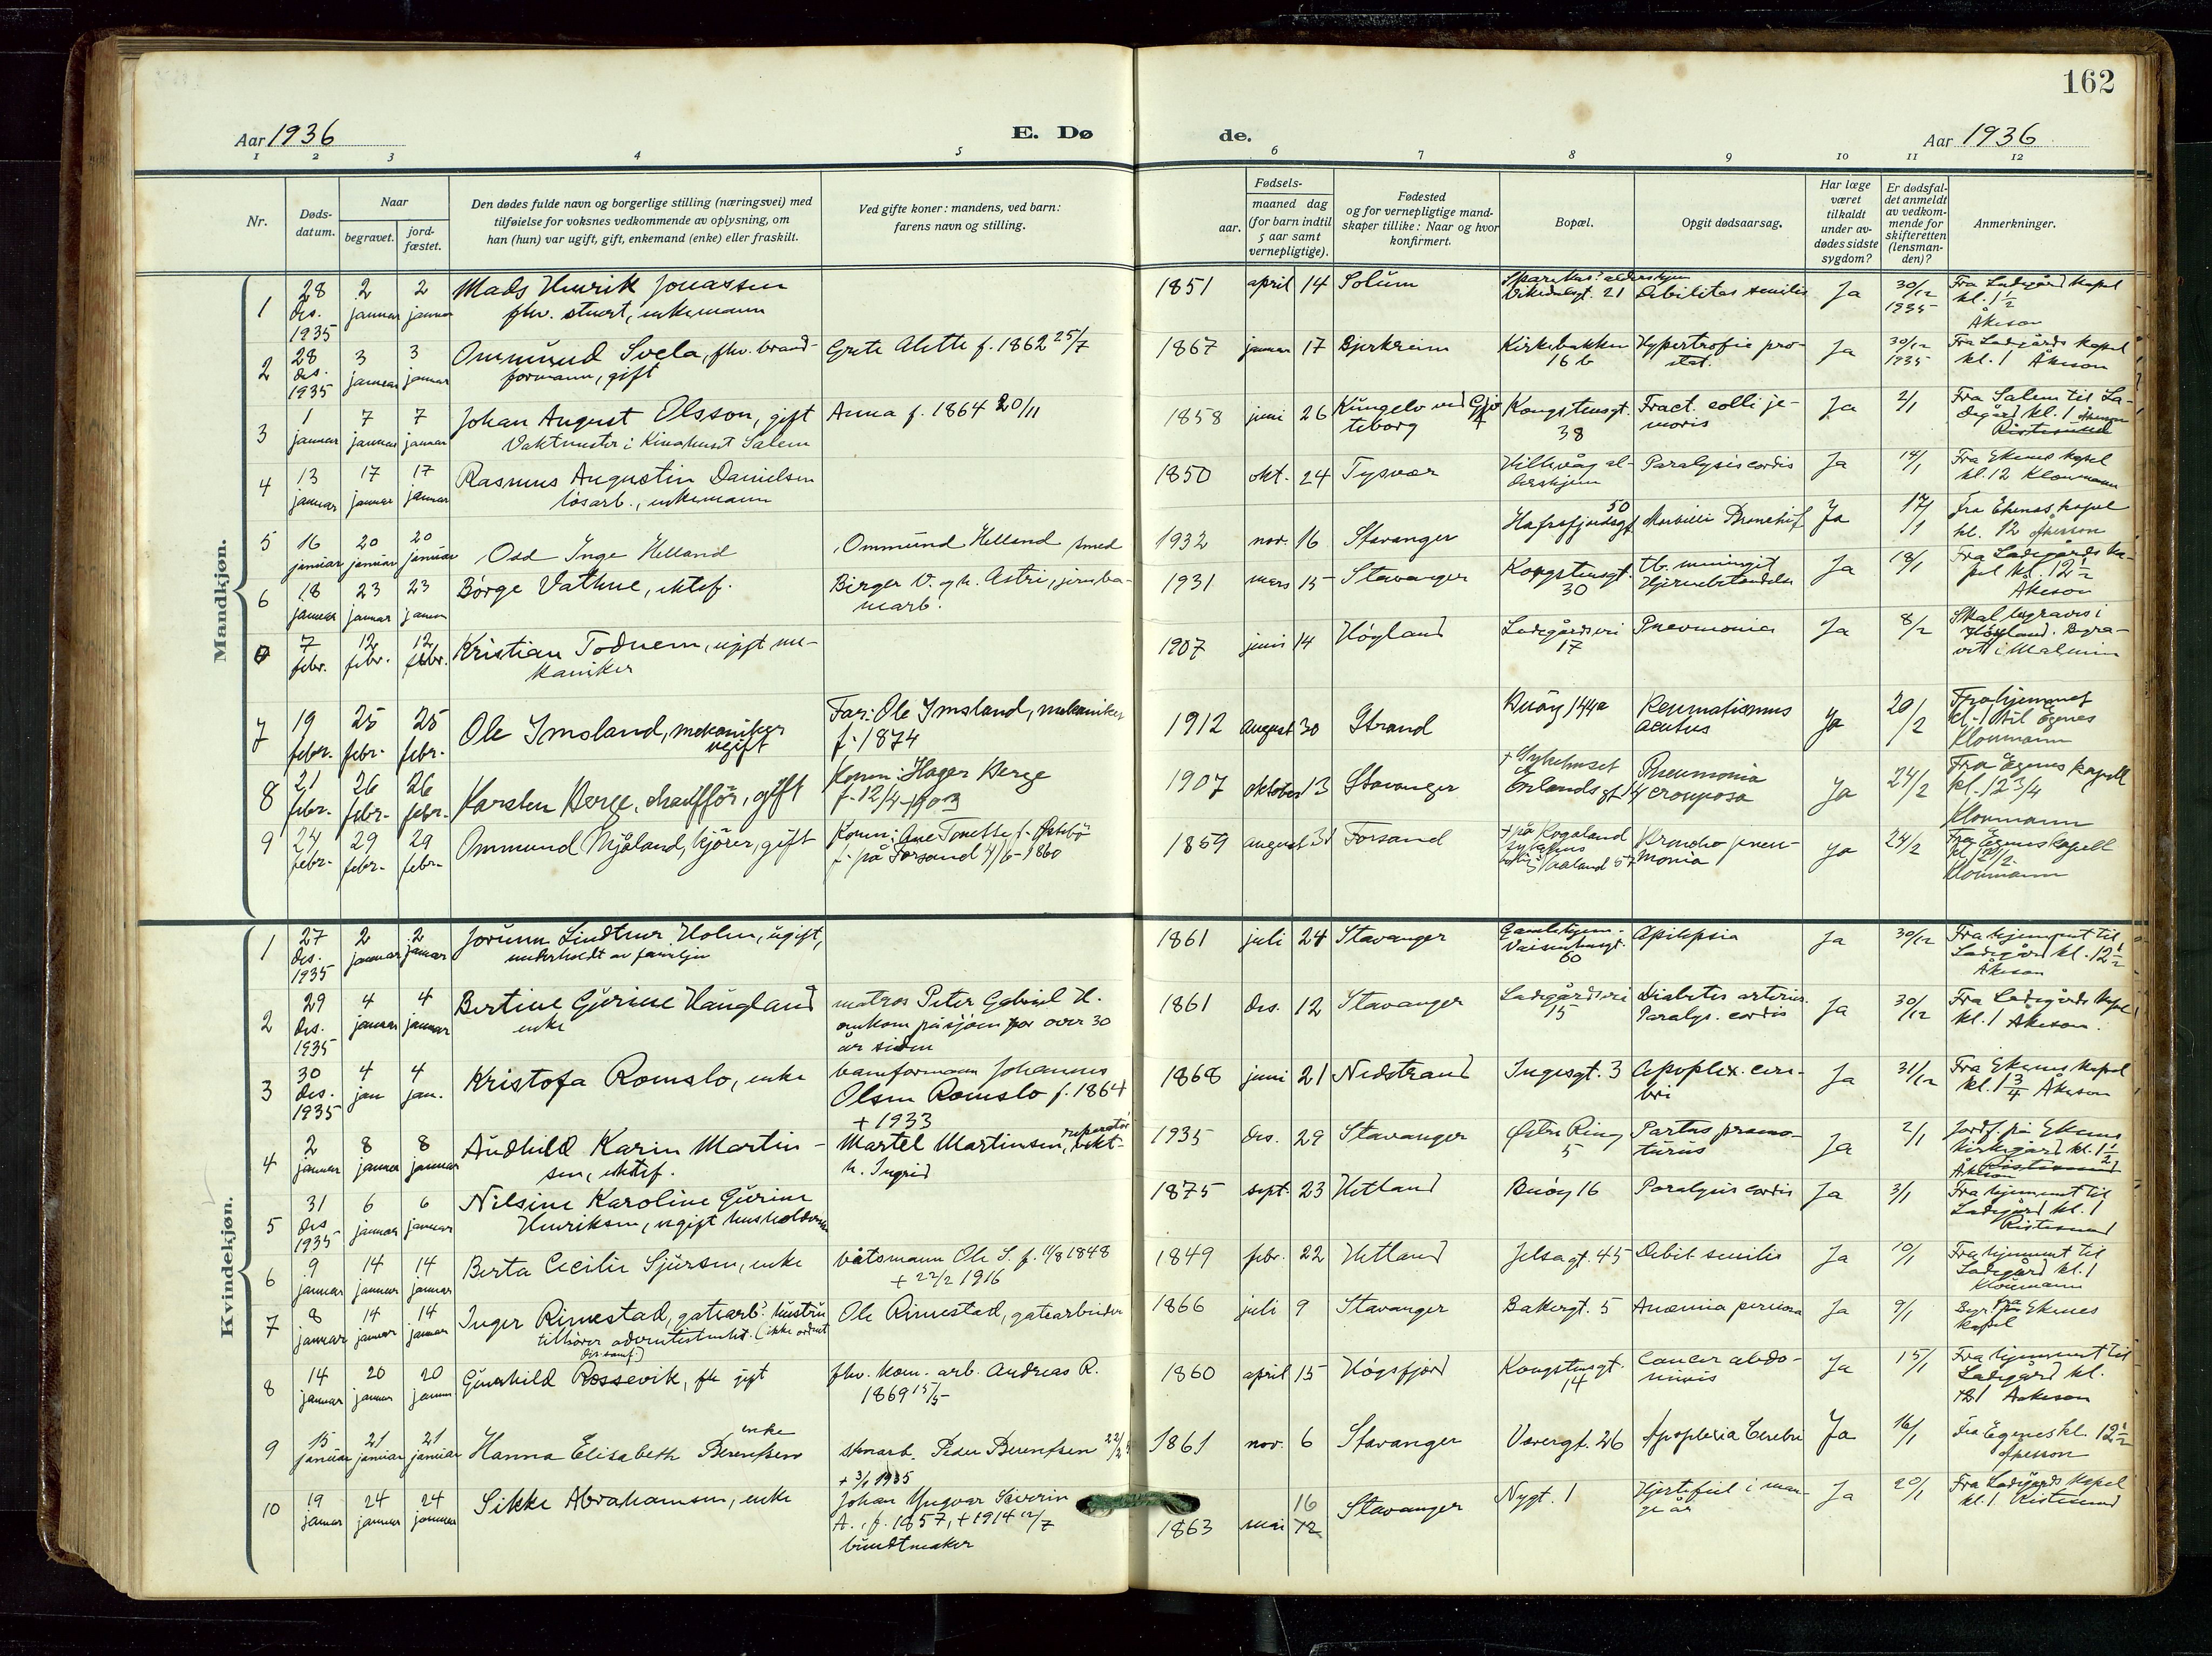 162
Aar 1936
E. Dø
de.
Aar 1936
1 2 3 4 5 6 7 8 9 10 11 12
Nr.
Døds-
datum.
Naar
begravet.
jord-
fæstet.
Den dødes fulde navn og borgerlige stilling (næringsvei) med
tilføielse for voksnes vedkommende av oplysning, om
han (hun) var ugift, gift, enkemand (enke) eller fraskilt.
Ved gifte koner: mandens, ved barn:
farens navn og stilling.
Fødsels-
aar.
maaned dag
(for barn indtil
5 aar samt
vernepligtige).
Fødested
og for vernepligtige mand-
skaper tillike: Naar og hvor
konfirmert.
Bopæl.
Opgit dødsaarsag.
Har læge
været
tilkaldt
under av-
dødes sidste
sygdom?
Er dødsfal-
det anmeldt
av vedkom-
mende for
skifteretten
(lensman-
den)?
Anmerkninger.
Mandkjøn.
1
28
des.
1935
2
januar
2
januar
Mads Henrik Jonassen
fhv. stuert, enkemann
1851 april 14 Solum
Vikedalsgt. 21
Debilitas senilis
Ja
30/12
1935
Fra Ladegård kapel
kl. 1 1/2
Åkeson
2
28
des.
1935
3
januar
3
januar
Ommund Svela, fhv. brand-
formann, gift
Grete Alette f. 1862 25/7
1867 januar 17 Bjerkreim
Kirkebakken
16 b
Hypertrofia pro-
stat.
Ja
30/12
1935
Fra Ladegårds kapel
kl. 1 Åkeson
3
1
januar
7
januar
7
januar
Johan August Olsson, gift
Vaktmester i Kinahuset Salem
Anna f. 1864 20/11
1858 juni 26 Kungelv ved Gjø
teborg
Kongstensgt.
38
Fract. colli fe-
moris
Ja
2/1
Fra Salem til La-
degård kl. 1 Åkeson
Ristesund
4
13
januar
17
januar
17
januar
Rasmus Augustin Danielsen
løsarb., enkemann
1850 okt. 24 Tysvær
Hillevåg al-
dershjem
Paralysis cordis
Ja
14/1
Fra Ekenes kapel
kl. 12 Kloumann
5
16
januar
20
januar
20
januar
Odd Inge Helland
Ommund Helland smed
1932 nov. 16 Stavanger
50
Hafrsfjordsgt
Morbilli
Ja
17/1
Fra Ekenes kapel
kl. 12 Åkesson
6
18
januar
23
januar
23
januar
Børge Vathne, ektef.
Birger V. og h. Astri, jernba-
nearb.
1931 mars 15 Stavanger
Kongstensgt.
30
tb. meningit
Hjernebetendelse
Ja
18/1
Fra Ladegårds ka-
pel kl. 12 1/2
Åkeson
0
7
febr.
12
febr.
12
febr.
Kristian Todnem, ugift me-
kaniker
1907 juni 14 Høyland
Ladegårdsvei
17
Pneumonia
Ja
8/2
Skal begraves i
Høyland. Begra-
vet i Malmin
7
19
febr.
25
febr.
25
febr.
Ole Imsland, mekaniker
ugift
Far: Ole Imsland, mekaniker
f. 1874
1912 august 30 Strand
Buøy 144a
Reumatismus
acutus
Ja
20/2
Fra hjemmet
til Egenes
Kloumann
8
21
febr.
26
febr.
26
febr.
Karsten Berge, chauffør, gift
Konn: Hager Berge
f. 12/4-1903
1907 oktober 13 Stavanger
+ Sykehuset
Erlandsgt 14
Pneumonia
crouposa
Ja
24/2
Fra Egenes kapell
kl. 12 3/4
Kloumann
9
24
febr.
29
febr.
29
febr.
Ommund Mjåland, kjører, gift
Konn: Ane Tonette f.
f. på Forsand 4/6-1860
1859 august 31 Forsand
+ på Rogaland
sykehus
Vaaland 57
Broncho pneu-
monia
Ja
24/2
Fra Egenes kapell
kl. 12 1/2
Kloumann
Kvindekjøn.
1
27
des.
1935
2
januar
2
januar
Jorunn Lindtner Holm, ugift,
underholdt av familjen
1861 juli 24 Stavanger
Gamlehjem-
Vaisenhusgt.
60
Epilepsia
Ja
30/12
Fra hjemmet til
Ladegård kl. 12 1/2
Åkeson
2
29
des.
1935
4
januar
4
januar
Bertine Gurine Haugland
enke
matros Peter Gabriel H.
omkom på sjøen for over 30
år siden
1861 des. 12 Stavanger
Ladegårdsvei
15
Diabetes arterios.
Paralys. cordis
Ja
30/12
Fra Ladegårds kapel
kl. 1 Åkeson.
3
30
des.
1935
4
jan
4
jan.
Kristofa Romslo, enke
baneformann Johannes
Olsen Romslo f. 1864
+ 1933
1868 juni 21 Nedstrand
Ingesgt. 3
Apoplex. cere-
bri
Ja
31/12
Fra Ekenes kapel
kl. 1 3/4 Åkeson
4
2
januar
8
januar
8
januar
Audhild Karin Martin-
sen, ektef.
Martel Martinsen, reperatør
h. Ingrid
1935 des. 29 Stavanger
Østre Ring
5
Partus præma-
turus
Ja
2/1
Jordf. på Ekenes
kirkegård kl. 1 1/2
Åkeson Ristesund
5
31
des
1935
6
januar
6
januar
Nilsine Karoline Gurine
Henriksen, ugift husholderske
1875 sept. 23 Hetland
Buøy 16
Paralysis cordis
Ja
3/1
Fra hjemmet til
Ladegård kl. 1
Ristesund
6
9
januar
14
januar
14
januar
Berta Cecilie Sjursen, enke
båtsmann Ole S. f. 11/8 1848
+ 22/2 1916
1849 febr. 22 Hetland
Jelsagt. 45
Debil. senilis
Ja
10/1
Fra hjemmet til
Ladegård kl. 1
Kloumann
7
8
januar
14
januar
14
januar
Inger Rimestad, gatearb. hustru
tilhører adventistenes. (ikke ordnet
dis. samf.)
Ole Rimestad, gatearbeider
1866 juli 9 Stavanger
Bakergt. 5
Anæmia perniciosa
Ja
9/1
Begr. fra Ekenes
kapel
8
14
januar
20
januar
20
januar
Gunhild Rossevik, gift
fhv. kom. arb. Andreas R.
1869 15/5
1860 april 15 Høgsfjord
Kongstensgt.
14
Cancer abdo-
minis
Ja
15/1
Fra hjemmet til
Ladegård kl.
1 Åakeson
9
15
januar
21
januar
21
januar
enke
Hanna Elisabeth Berentsen
stenarb. Peder Berentsen 22/2
+ 3/1 1935
1861 nov. 6 Stavanger
Verergt. 26
Apoplexia Cerebri
Ja
16/1
Fra Egenes kl. 12 1/2
Åkesson
10
19
januar
24
januar
24
januar
Sikke Abrahamsen, enke
Johan Yngvar Severin
A., f. 1857, + 1914 12/7
buntmaker
1863 mai 16 12 Stavanger
Nygt. 1
Hjertefeil i man-
ge år
Ja
20/1
Fra Ladegårds kapel
kl. 1 Ristesund